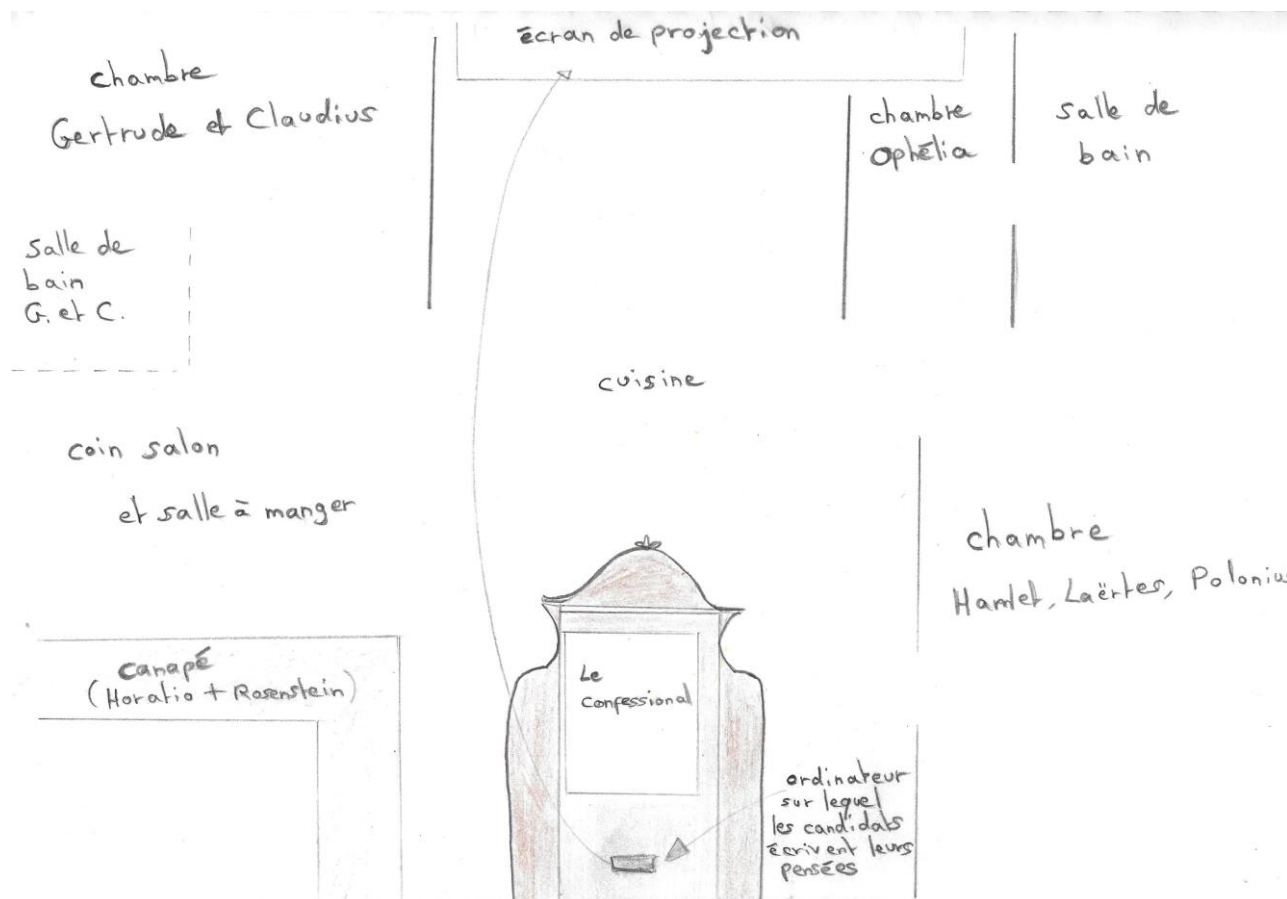 écran de projection
chambre
Gertrude et Claudius
chambre
Ophélia
salle de
bain
salle de
bain
G. et C.
cuisine
coin salon
et salle à manger
chambre
Hamlet, Laërtes, Polonius
canapé
(Horatio + Rosenstein)
Le
confessional
ordinateur
sur lequel
les candidats
écrivent leurs
pensées